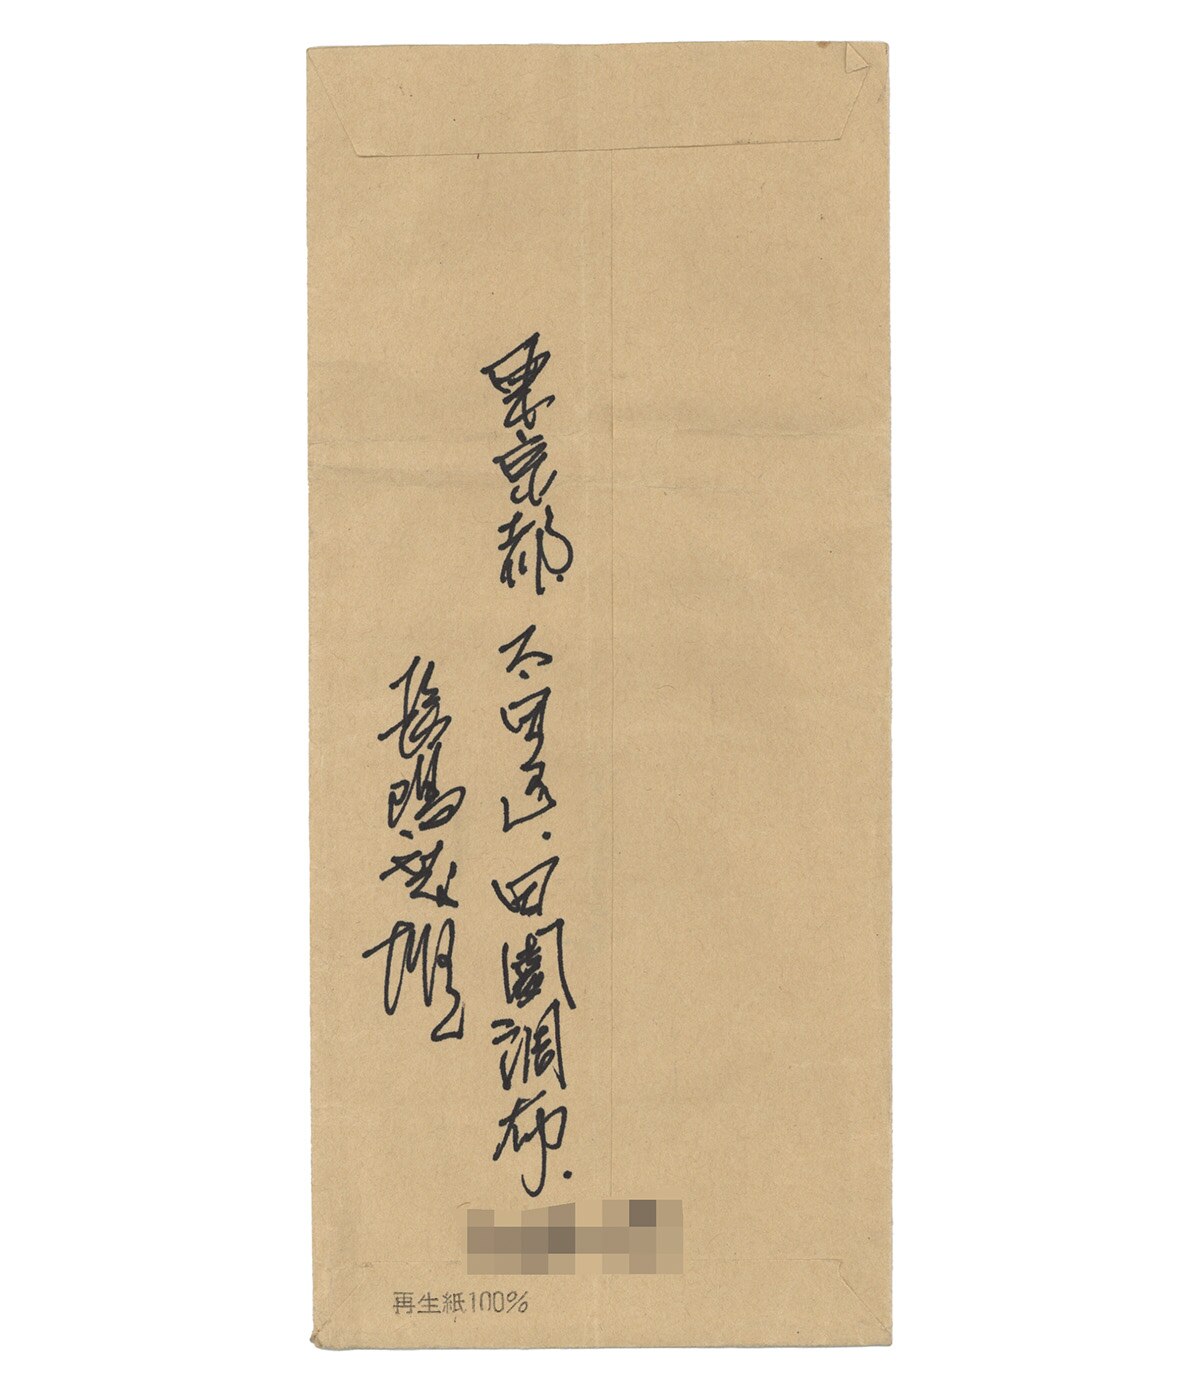 東京都 大田区 田園調布
長嶋茂雄
再生紙100%